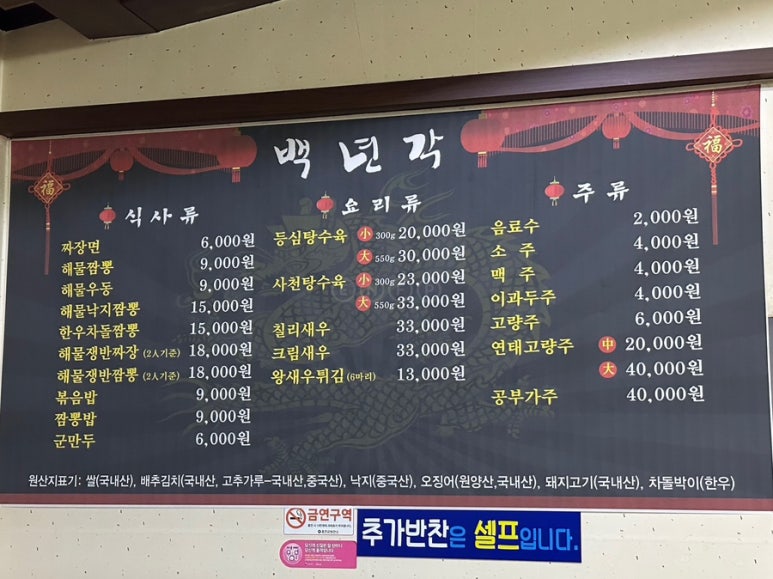 백년각
福
福
식사류
짜장면 6,000원
해물짬뽕 9,000원
해물우동 9,000원
해물낙지짬뽕 15,000원
한우차돌짬뽕 15,000원
해물쟁반짜장 (2人기준) 18,000원
해물쟁반짬뽕 (2人기준) 18,000원
볶음밥 9,000원
짬뽕밥 9,000원
군만두 6,000원
요리류
등심탕수육 小 300g 20,000원
大 550g 30,000원
사천탕수육 小 300g 23,000원
大 550g 33,000원
칠리새우 33,000원
크림새우 33,000원
왕새우튀김 (6마리) 13,000원
주류
음료수 2,000원
소주 4,000원
맥주 4,000원
이과두주 4,000원
고량주 6,000원
연태고량주 中 20,000원
大 40,000원
공부가주 40,000원
원산지표기: 쌀(국내산), 배추김치(국내산, 고추가루-국내산,중국산), 낙지(중국산), 오징어(원양산,국내산), 돼지고기(국내산), 차돌박이(한우)
금연구역
추가반찬은 셀프입니다.